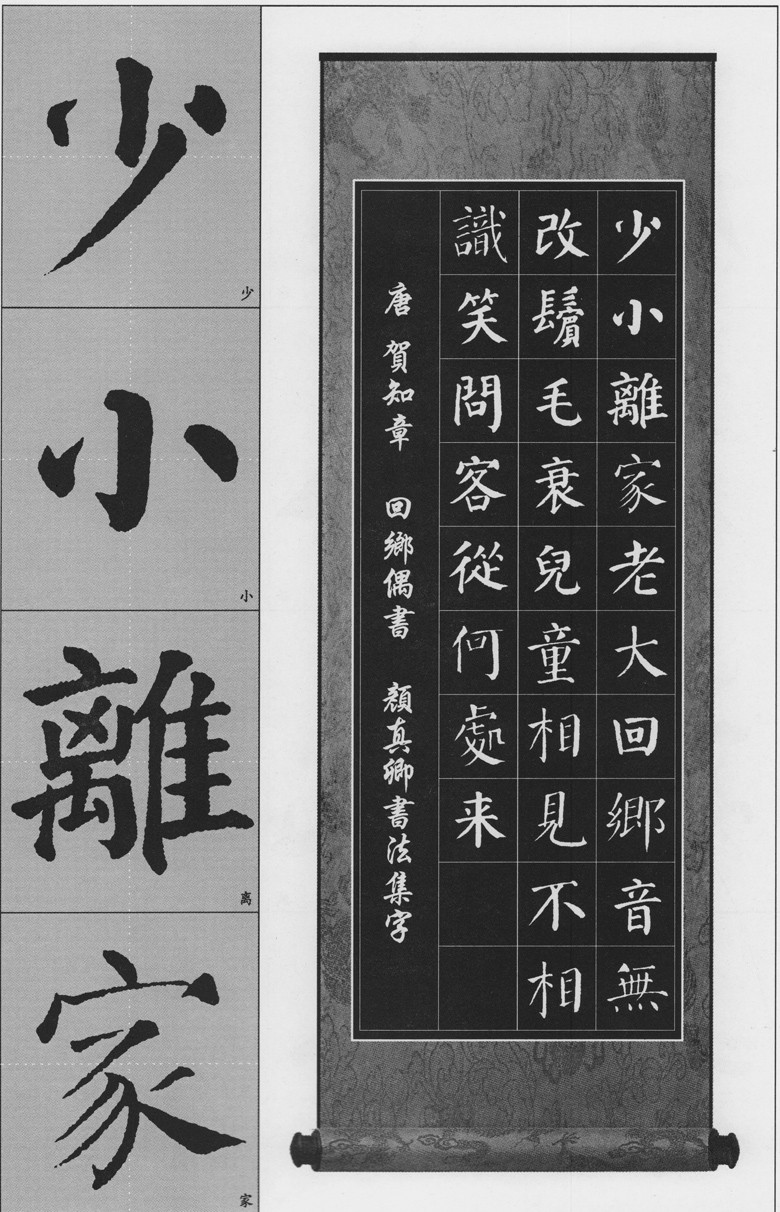 少小離家老大回鄉音無
改鬢毛衰兒童相見不相
識笑問客從何處来
唐 賀知章 回鄉偶書 顏真卿書法集字
少
少
小
小
離
离
家
家